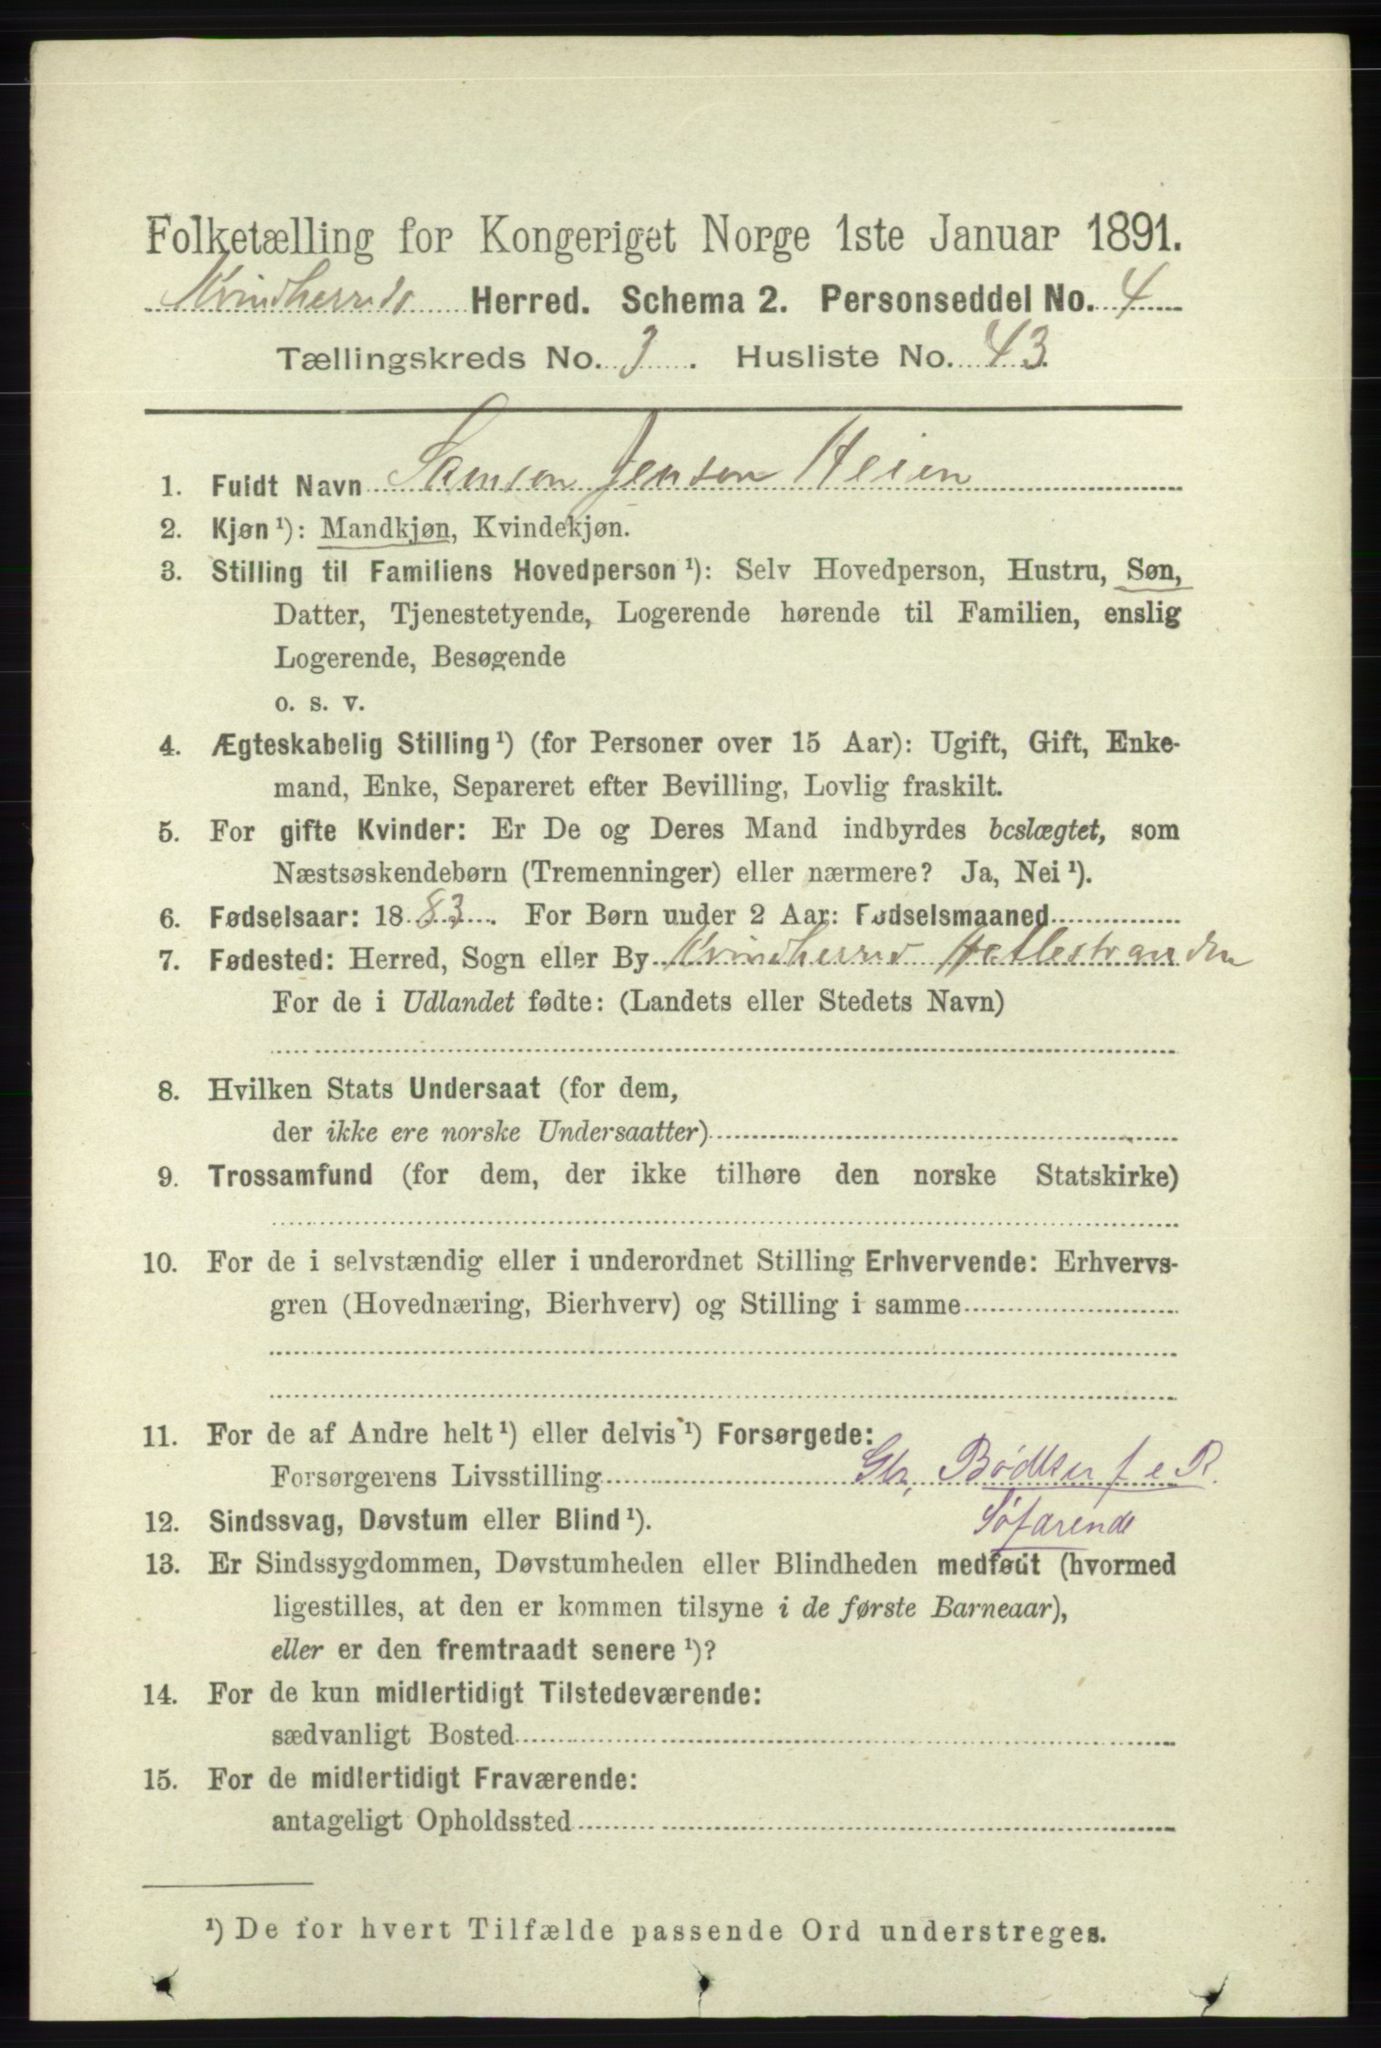 Folketælling for Kongeriget Norge 1ste Januar 1891.
Kvindherreds Herred. Schema 2. Personseddel No. 4
Tællingskreds No. 3. Husliste No. 43
1. Fuldt Navn Samson Jenson Heien
2. Kjøn ¹): Mandkjøn, Kvindekjøn.
3. Stilling til Familiens Hovedperson ¹): Selv Hovedperson, Hustru, Søn,
Datter, Tjenestetyende, Logerende hørende til Familien, enslig
Logerende, Besøgende
o. s. v.
4. Ægteskabelig Stilling ¹) (for Personer over 15 Aar): Ugift, Gift, Enke-
mand, Enke, Separeret efter Bevilling, Lovlig fraskilt.
5. For gifte Kvinder: Er De og Deres Mand indbyrdes beslægtet, som
Næstsøskendebørn (Tremenninger) eller nærmere? Ja, Nei ¹).
6. Fødselsaar: 1883. For Børn under 2 Aar: Fødselsmaaned
7. Fødested: Herred, Sogn eller By Kvindherred Hetlestranden
For de i Udlandet fødte: (Landets eller Stedets Navn)
8. Hvilken Stats Undersaat (for dem,
der ikke ere norske Undersaatter)
9. Trossamfund (for dem, der ikke tilhøre den norske Statskirke)
10. For de i selvstændig eller i underordnet Stilling Erhvervende: Erhvervs-
gren (Hovednæring, Bierhverv) og Stilling i samme
11. For de af Andre helt ¹) eller delvis ¹) Forsørgede:
Forsørgerens Livsstilling Gbr, Bødker f e R.
Søfarende
12. Sindssvag, Døvstum eller Blind ¹).
13. Er Sindssygdommen, Døvstumheden eller Blindheden medfødt (hvormed
ligestilles, at den er kommen tilsyne i de første Barneaar),
eller er den fremtraadt senere ¹)?
14. For de kun midlertidigt Tilstedeværende:
sædvanligt Bosted
15. For de midlertidigt Fraværende:
antageligt Opholdssted
¹) De for hvert Tilfælde passende Ord understreges.